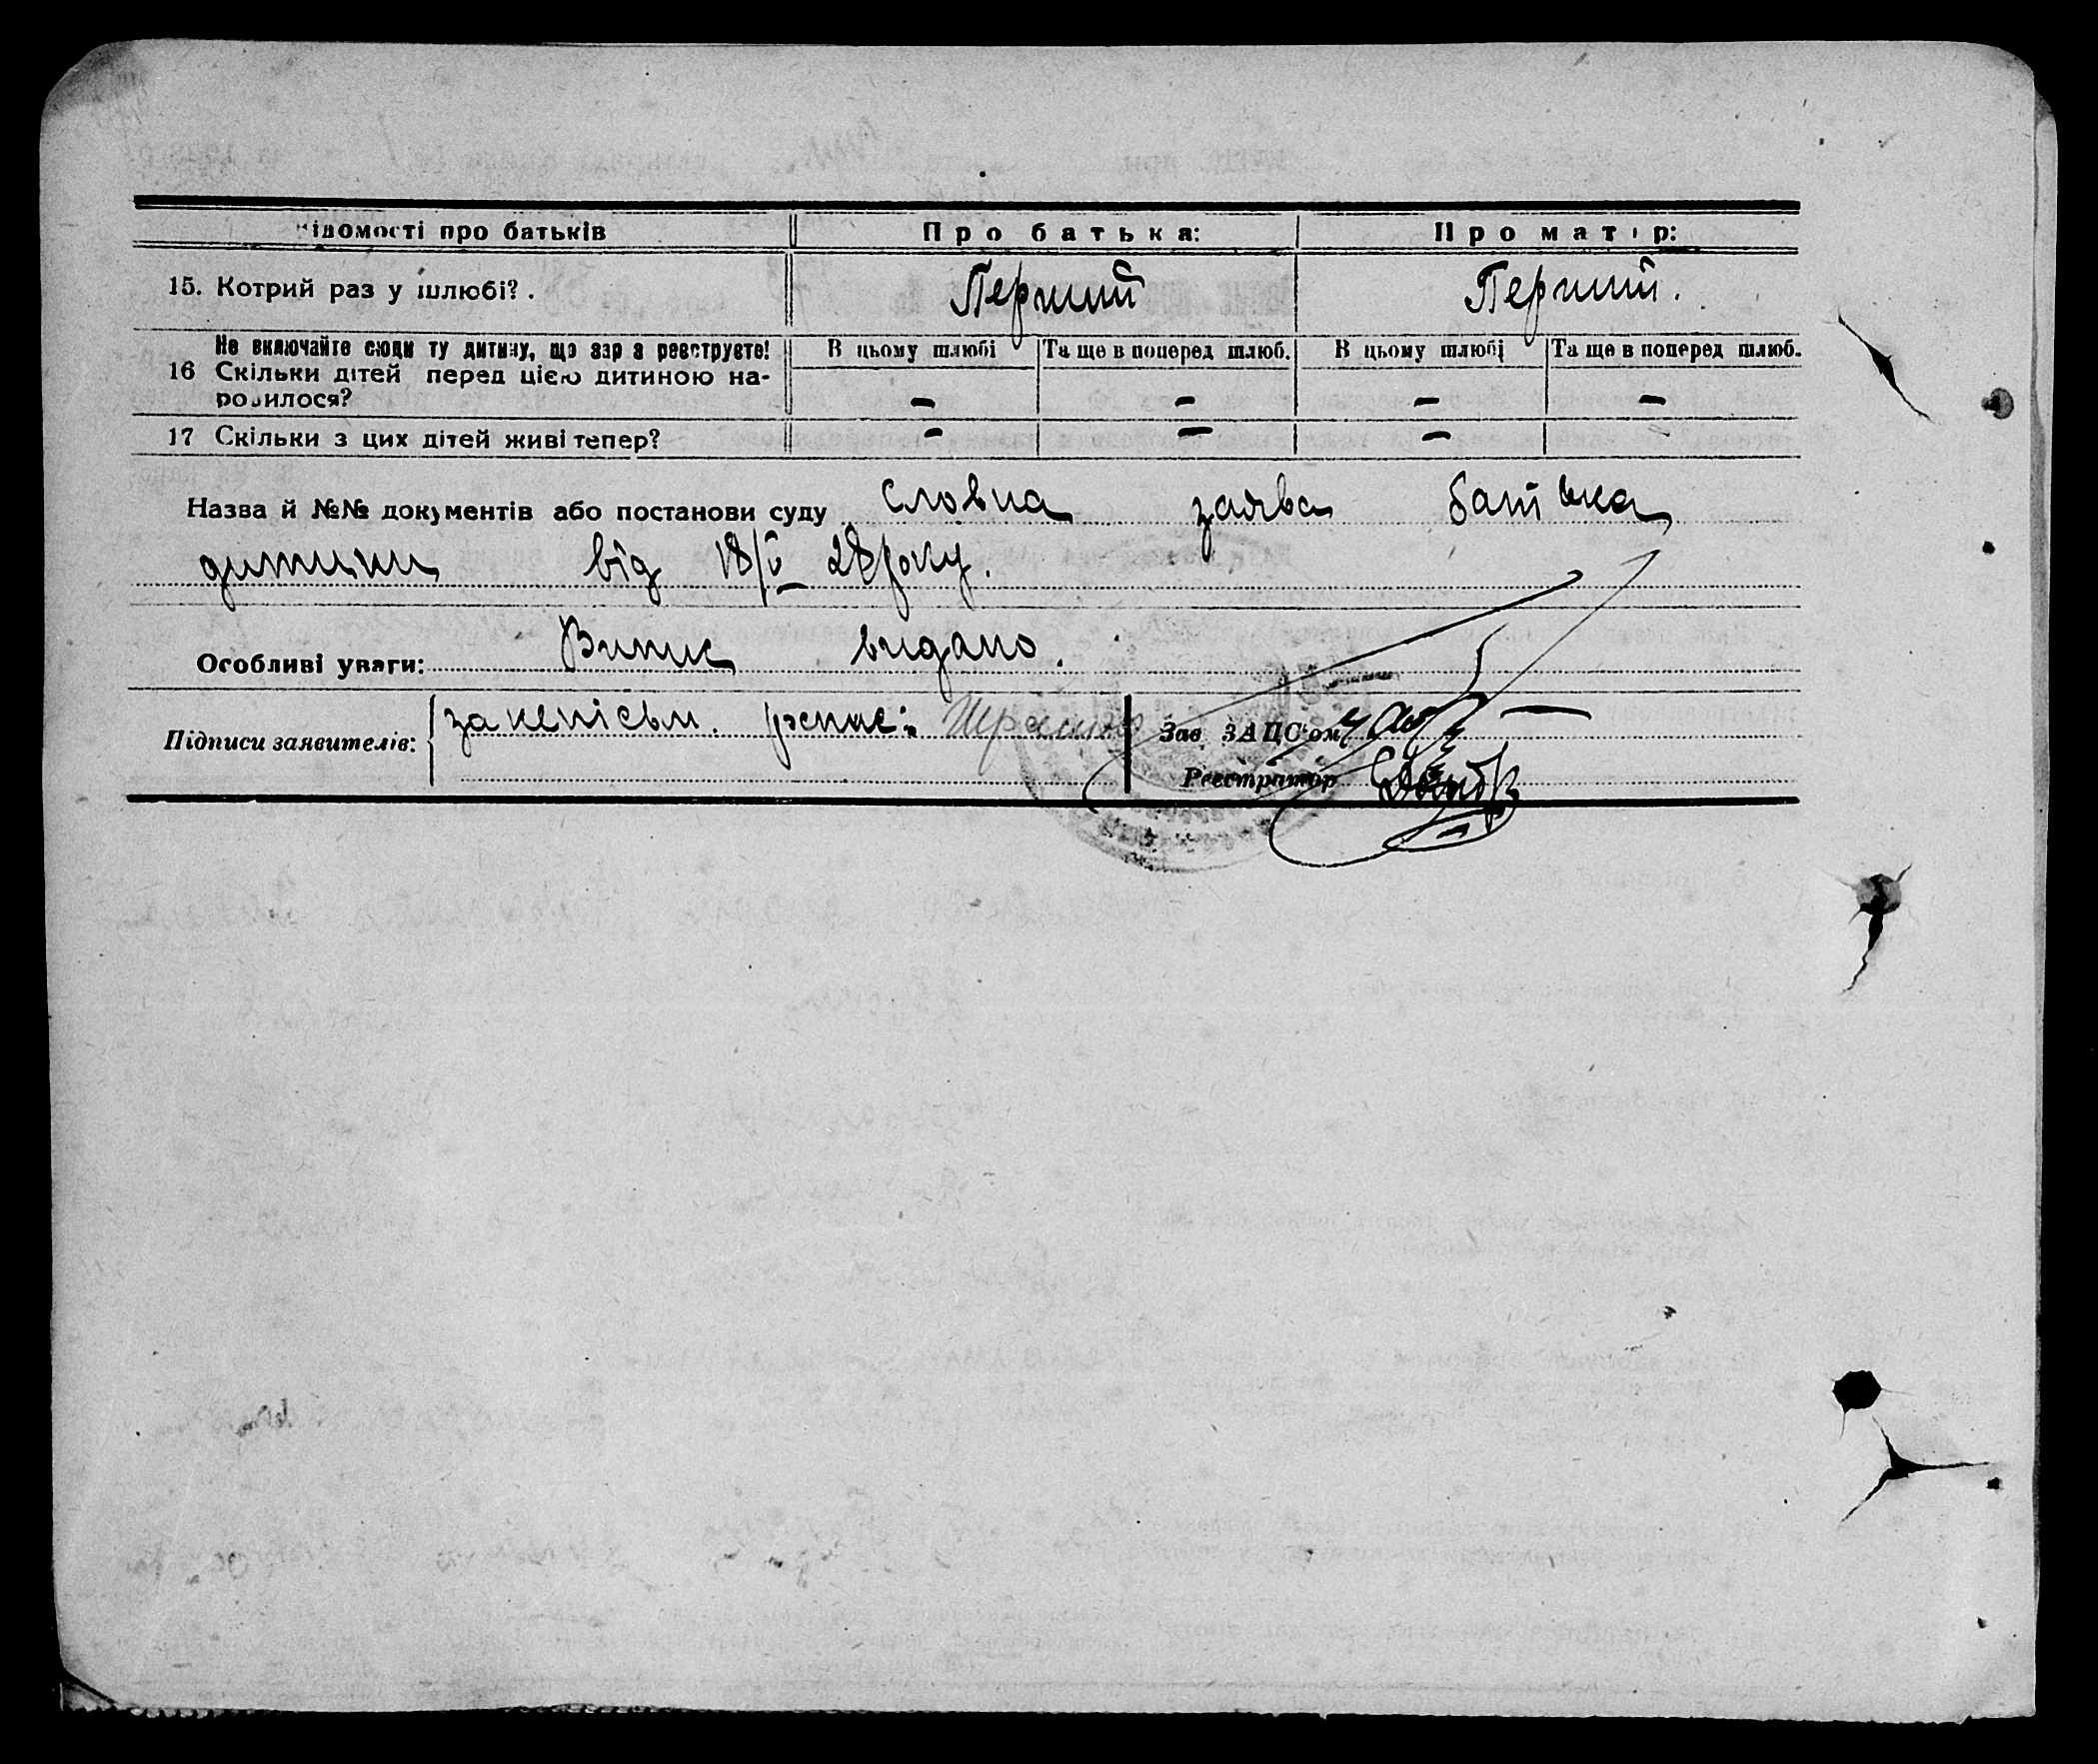 ідомості про батьків Про батька: Про матір:
15. Котрий раз у шлюбі? . Перший Перший.
Не включайте сюди ту дитину, що зараз реєструєте! В цьому шлюбі Та ще в поперед шлюб. В цьому шлюбі Та ще в поперед шлюб.
16 Скільки дітей перед цією дитиною на-
родилося? — — — —
17 Скільки з цих дітей живі тепер? — — —
Назва й №№ документів або постанови суду словна заява батька
дитини від 18/V 28 року.
Особливі уваги: Випис видано.
Підписи заявителів: за непісьм. Зав. ЗАЦС'ом
Реєстратор